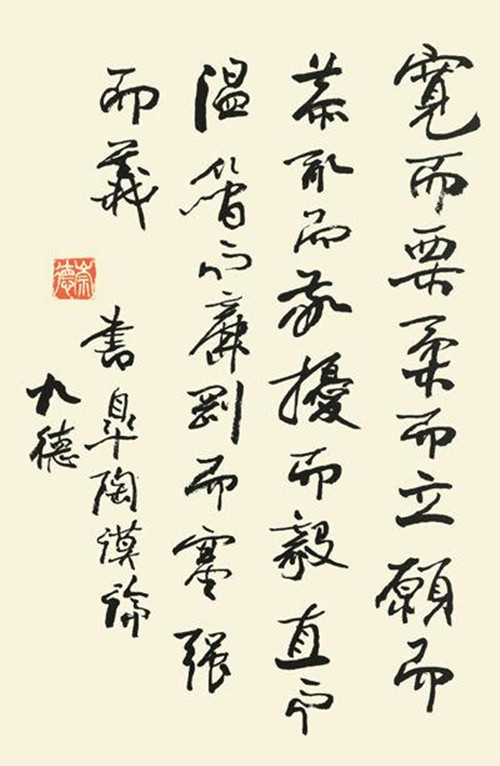 寬而栗柔而立願而
恭亂而敬擾而毅直而
温簡而廉剛而塞强
而義
崇德
書皋陶謨論
九德